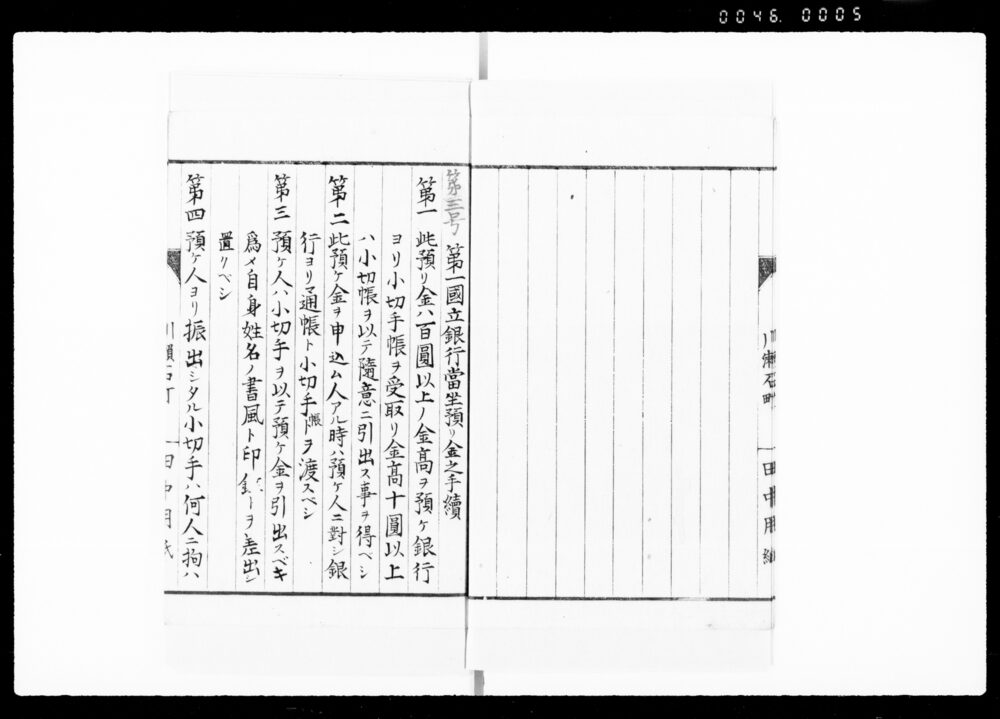 0046. 0005
第三号
第一國立銀行當坐預リ金之手續
第一 此預リ金ハ百圓以上ノ金髙ヲ預ケ銀行
ヨリ小切手帳ヲ受取リ金髙十圓以上
ハ小切帳ヲ以テ隨意ニ引出ス事ヲ得ベシ
第二 此預ケ金ヲ申込ム人アル時ハ預ケ人ニ對シ銀
行ヨリ通帳ト小切手帳トヲ渡スベシ
第三 預ケ人ハ小切手ヲ以テ預ケ金ヲ引出スベキ
爲メ自身姓名ノ書風ト印鑑トヲ差出シ
置クベシ
第四 預ケ人ヨリ振出シタル小切手ハ何人ニ拘ハ
田中用紙